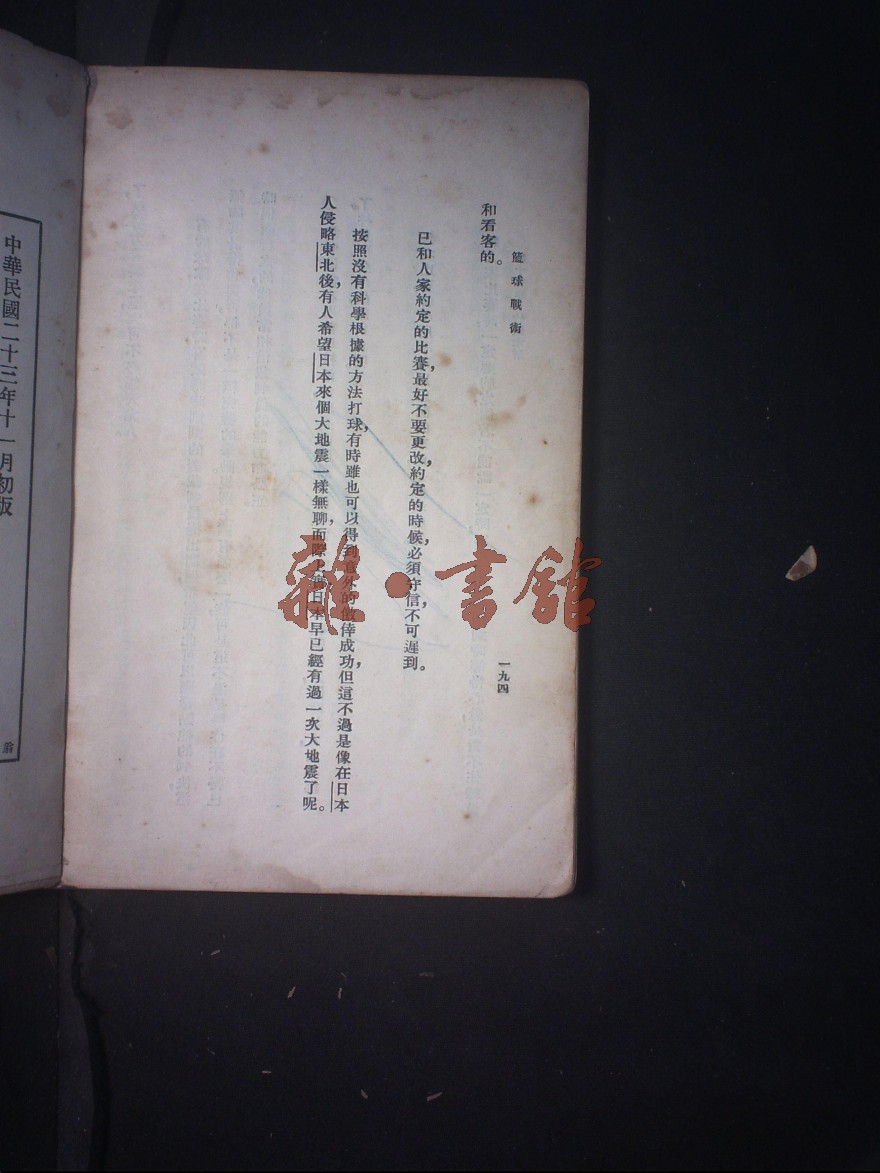 籃球戰術
一九四
和看客的。
已和人家約定的比賽，最好不要更改，約定的時候，必須守信，不可遲到。
按照沒有科學根據的方法打球，有時雖也可以得到意外的僥倖成功，但這不過是像在日本
人侵略東北後，有人希望日本來個大地震一樣無聊，而際上日本早已經有過一次大地震了呢。
中華民國二十三年十一月初版
翁
雜·書館